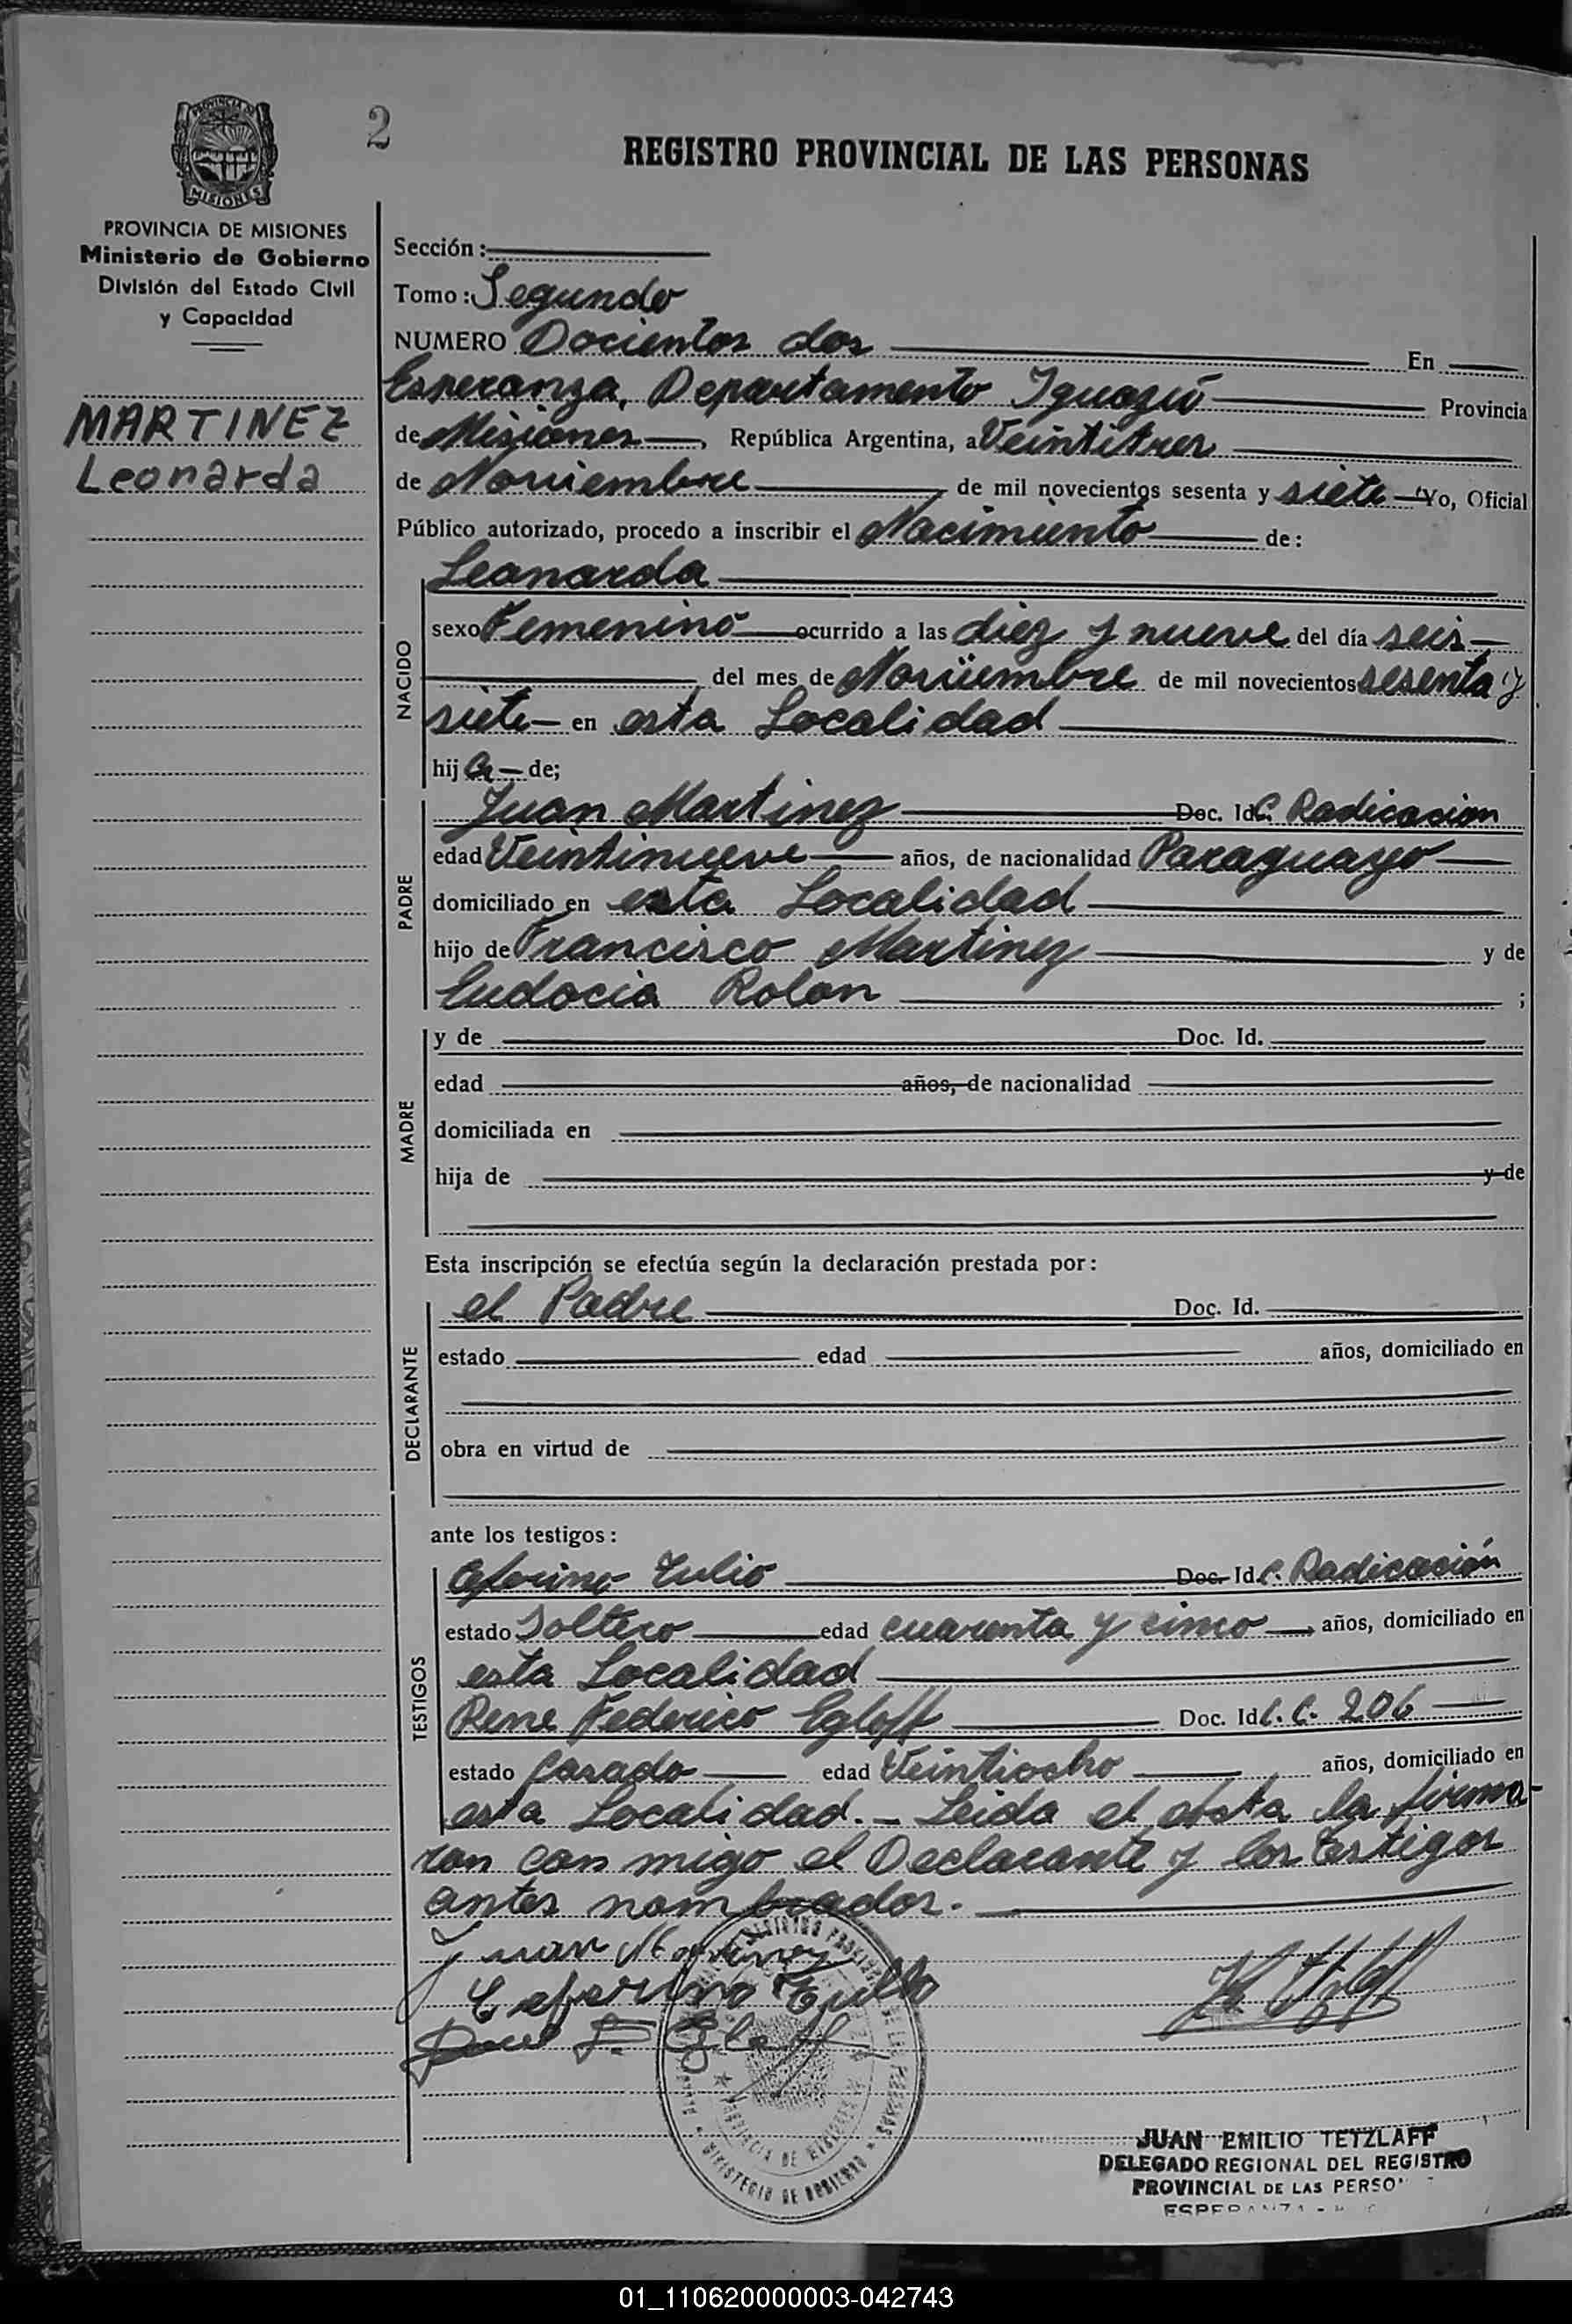 2
REGISTRO PROVINCIAL DE LAS PERSONAS
MISIONES
PROVINCIA DE MISIONES
Ministerio de Gobierno
División del Estado Civil
y Capacidad
MARTINEZ
Leonarda
Sección:
Tomo: Segundo
NUMERO Docientos dos En
Esperanza, Departamento Iguazú Provincia
de Misiones, República Argentina, a Veintitres
de Noviembre de mil novecientos sesenta y siete Yo, Oficial
Público autorizado, procedo a inscribir el Nacimiento de:
NACIDO
Leonarda
sexo Femenino ocurrido a las diez y nueve del día seis
del mes de Noviembre de mil novecientos sesenta y
siete en esta Localidad
hija de;
PADRE
Juan Martinez Doc. Id C. Radicacion
edad Veintinueve años, de nacionalidad Paraguayo
domiciliado en esta Localidad
hijo de Francisco Martinez y de
Eudocia Rolon ;
MADRE
y de Doc. Id.
edad años, de nacionalidad
domiciliada en
hija de y de
Esta inscripción se efectúa según la declaración prestada por:
DECLARANTE
el Padre Doc. Id.
estado edad años, domiciliado en
obra en virtud de
ante los testigos:
TESTIGOS
Ceferino Tulio Doc. Id C. Radicación
estado Soltero edad cuarenta y cinco años, domiciliado en
esta Localidad
Rene Federico Egloff Doc. Id L. C. 206
estado Casado edad Veintiocho años, domiciliado en
esta Localidad. - Leida el Acta la firma-
ron con migo el Declarante y los Testigos
antes nombrados.
Juan Martinez
Ceferino Tulio
F. Egloff
PROVINCIA DE MISIONES
MINISTERIO DE GOBIERNO
JUAN EMILIO TETZLAFF
DELEGADO REGIONAL DEL REGISTRO
PROVINCIAL DE LAS PERSO
ESPERANZA
01_110620000003-042743